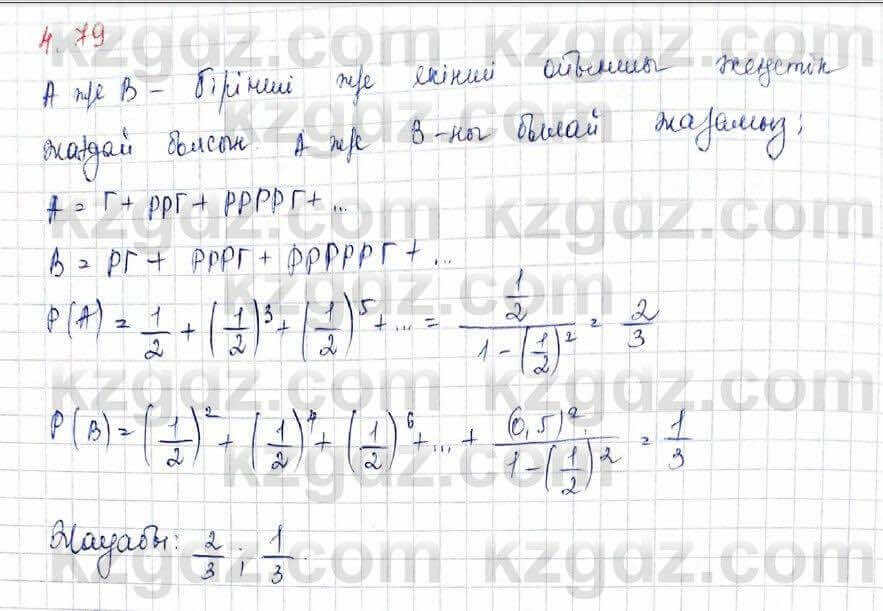 4.79
А ж/е В – бірінші ж/е екінші ойыншы жеңетін
жағдай болсын. А ж/е В-ны былай жазамыз:
A = Г + РРГ + РРРРГ + ...
B = РГ + РРРГ + РРРРРГ + ...
P(A) = 1/2 + (1/2)^3 + (1/2)^5 + ... = (1/2)/(1-(1/2)^2) = 2/3
P(B) = (1/2)^2 + (1/2)^4 + (1/2)^6 + ... + (0,5)^2/(1-(1/2)^2) = 1/3
Жауабы: 2/3 ; 1/3.
kzgdz.com